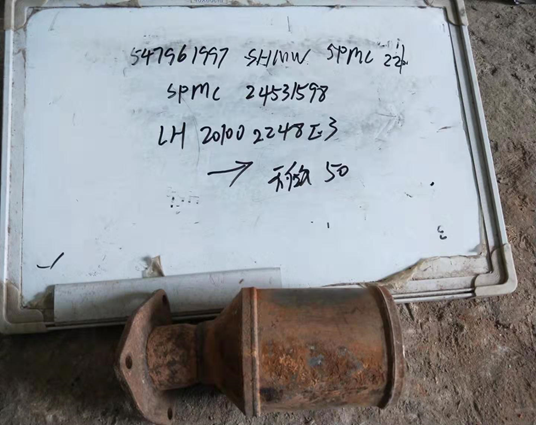 547961997 SHMW SPMC 221
SPMC 24531598
LH 20100 2248 E3
→ 50